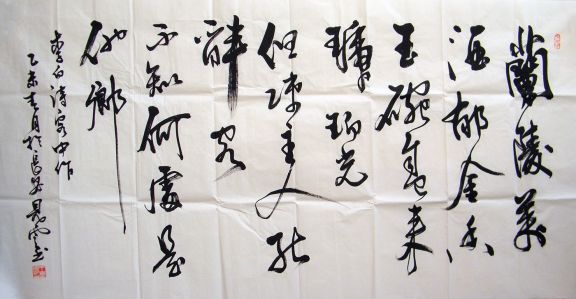 蘭陵美
酒郁金香
玉碗盛来
琥珀光
但使主人能
醉客
不知何處是
他鄉
李白诗客中作
乙未春月於長安